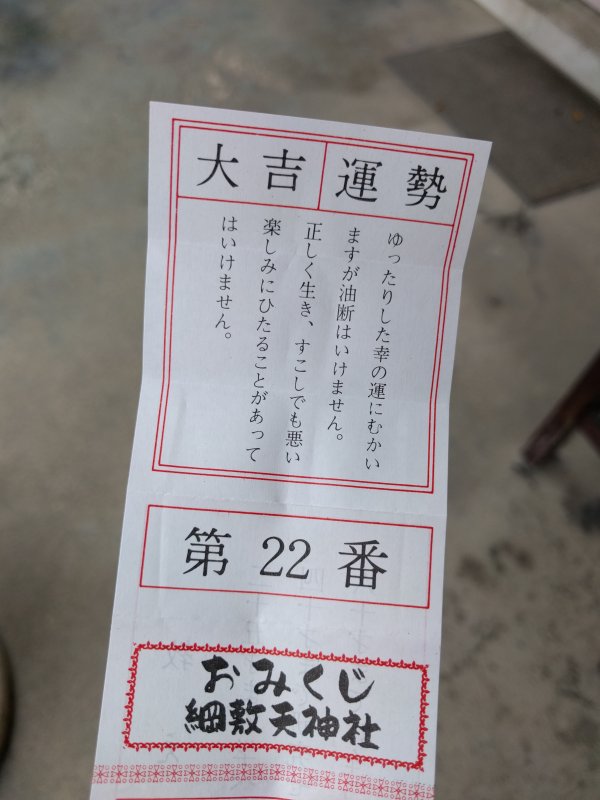 大吉 運勢
ゆったりした幸の運にむかい
ますが油断はいけません。
正しく生き、すこしでも悪い
楽しみにひたることがあって
はいけません。
第22番
おみくじ
綱敷天神社